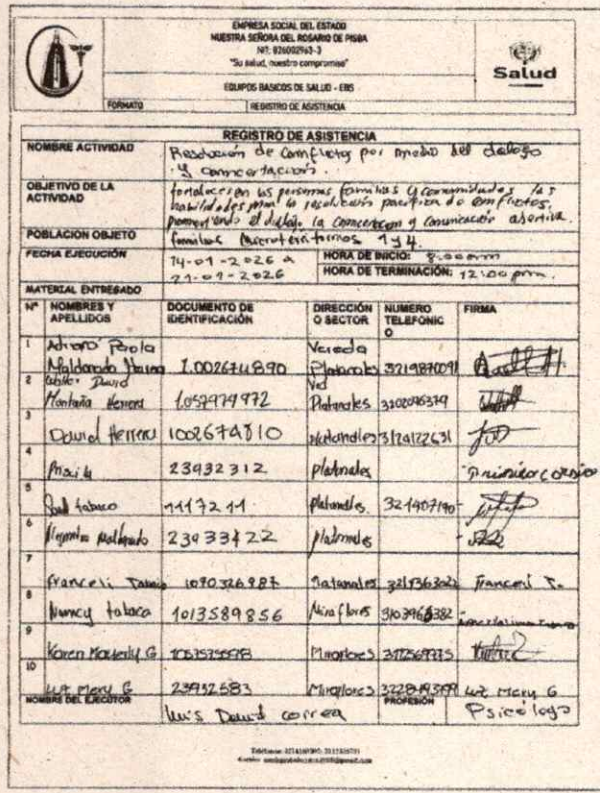 EMPRESA SOCIAL DEL ESTADO
NUESTRA SEÑORA DEL ROSARIO DE PISBA
NIT: 826002963-3
"Su salud, nuestro compromiso"
Salud
EQUIPOS BASICOS DE SALUD - EBS
FORMATO REGISTRO DE ASISTENCIA
REGISTRO DE ASISTENCIA
NOMBRE ACTIVIDAD Resolución de Conflictos por medio del dialogo
y concertación.
OBJETIVO DE LA ACTIVIDAD fortalecer en las personas familias y comunidades las
habilidades para la resolución pacifica de conflictos,
promoviendo el dialogo, la concertacion y comunicación asertiva.
POBLACION OBJETO familias Microterritorios 1 y 4.
FECHA EJECUCIÓN 14-01-2026 a
21-01-2026
HORA DE INICIO: 8:00am
HORA DE TERMINACIÓN: 12:00 pm.
MATERIAL ENTREGADO
Nº NOMBRES Y APELLIDOS DOCUMENTO DE IDENTIFICACIÓN DIRECCIÓN O SECTOR NUMERO TELEFONICO FIRMA
1 Paola Maldonado 1.002674890 Vereda Platanales 3219870091
2 David Montaña Herrera 1057979972 Ved Platanales 3202096379
3 David Herrera 1002674810 Platanales 3124122631
4 23932312 Platanales
5 tabaco 1117211 Platanales
6 Maldonado 23933422 Platanales
7 Franceli 1070326987 Platanales Franceli T.
8 Nancy tabaco 1013589856 Miraflores
9 Karen G Miraflores
10 Luz Mery G 23932583 Miraflores Luz Mery G
NOMBRE DEL EJECUTOR Luis David correa PROFESIÓN Psicólogo